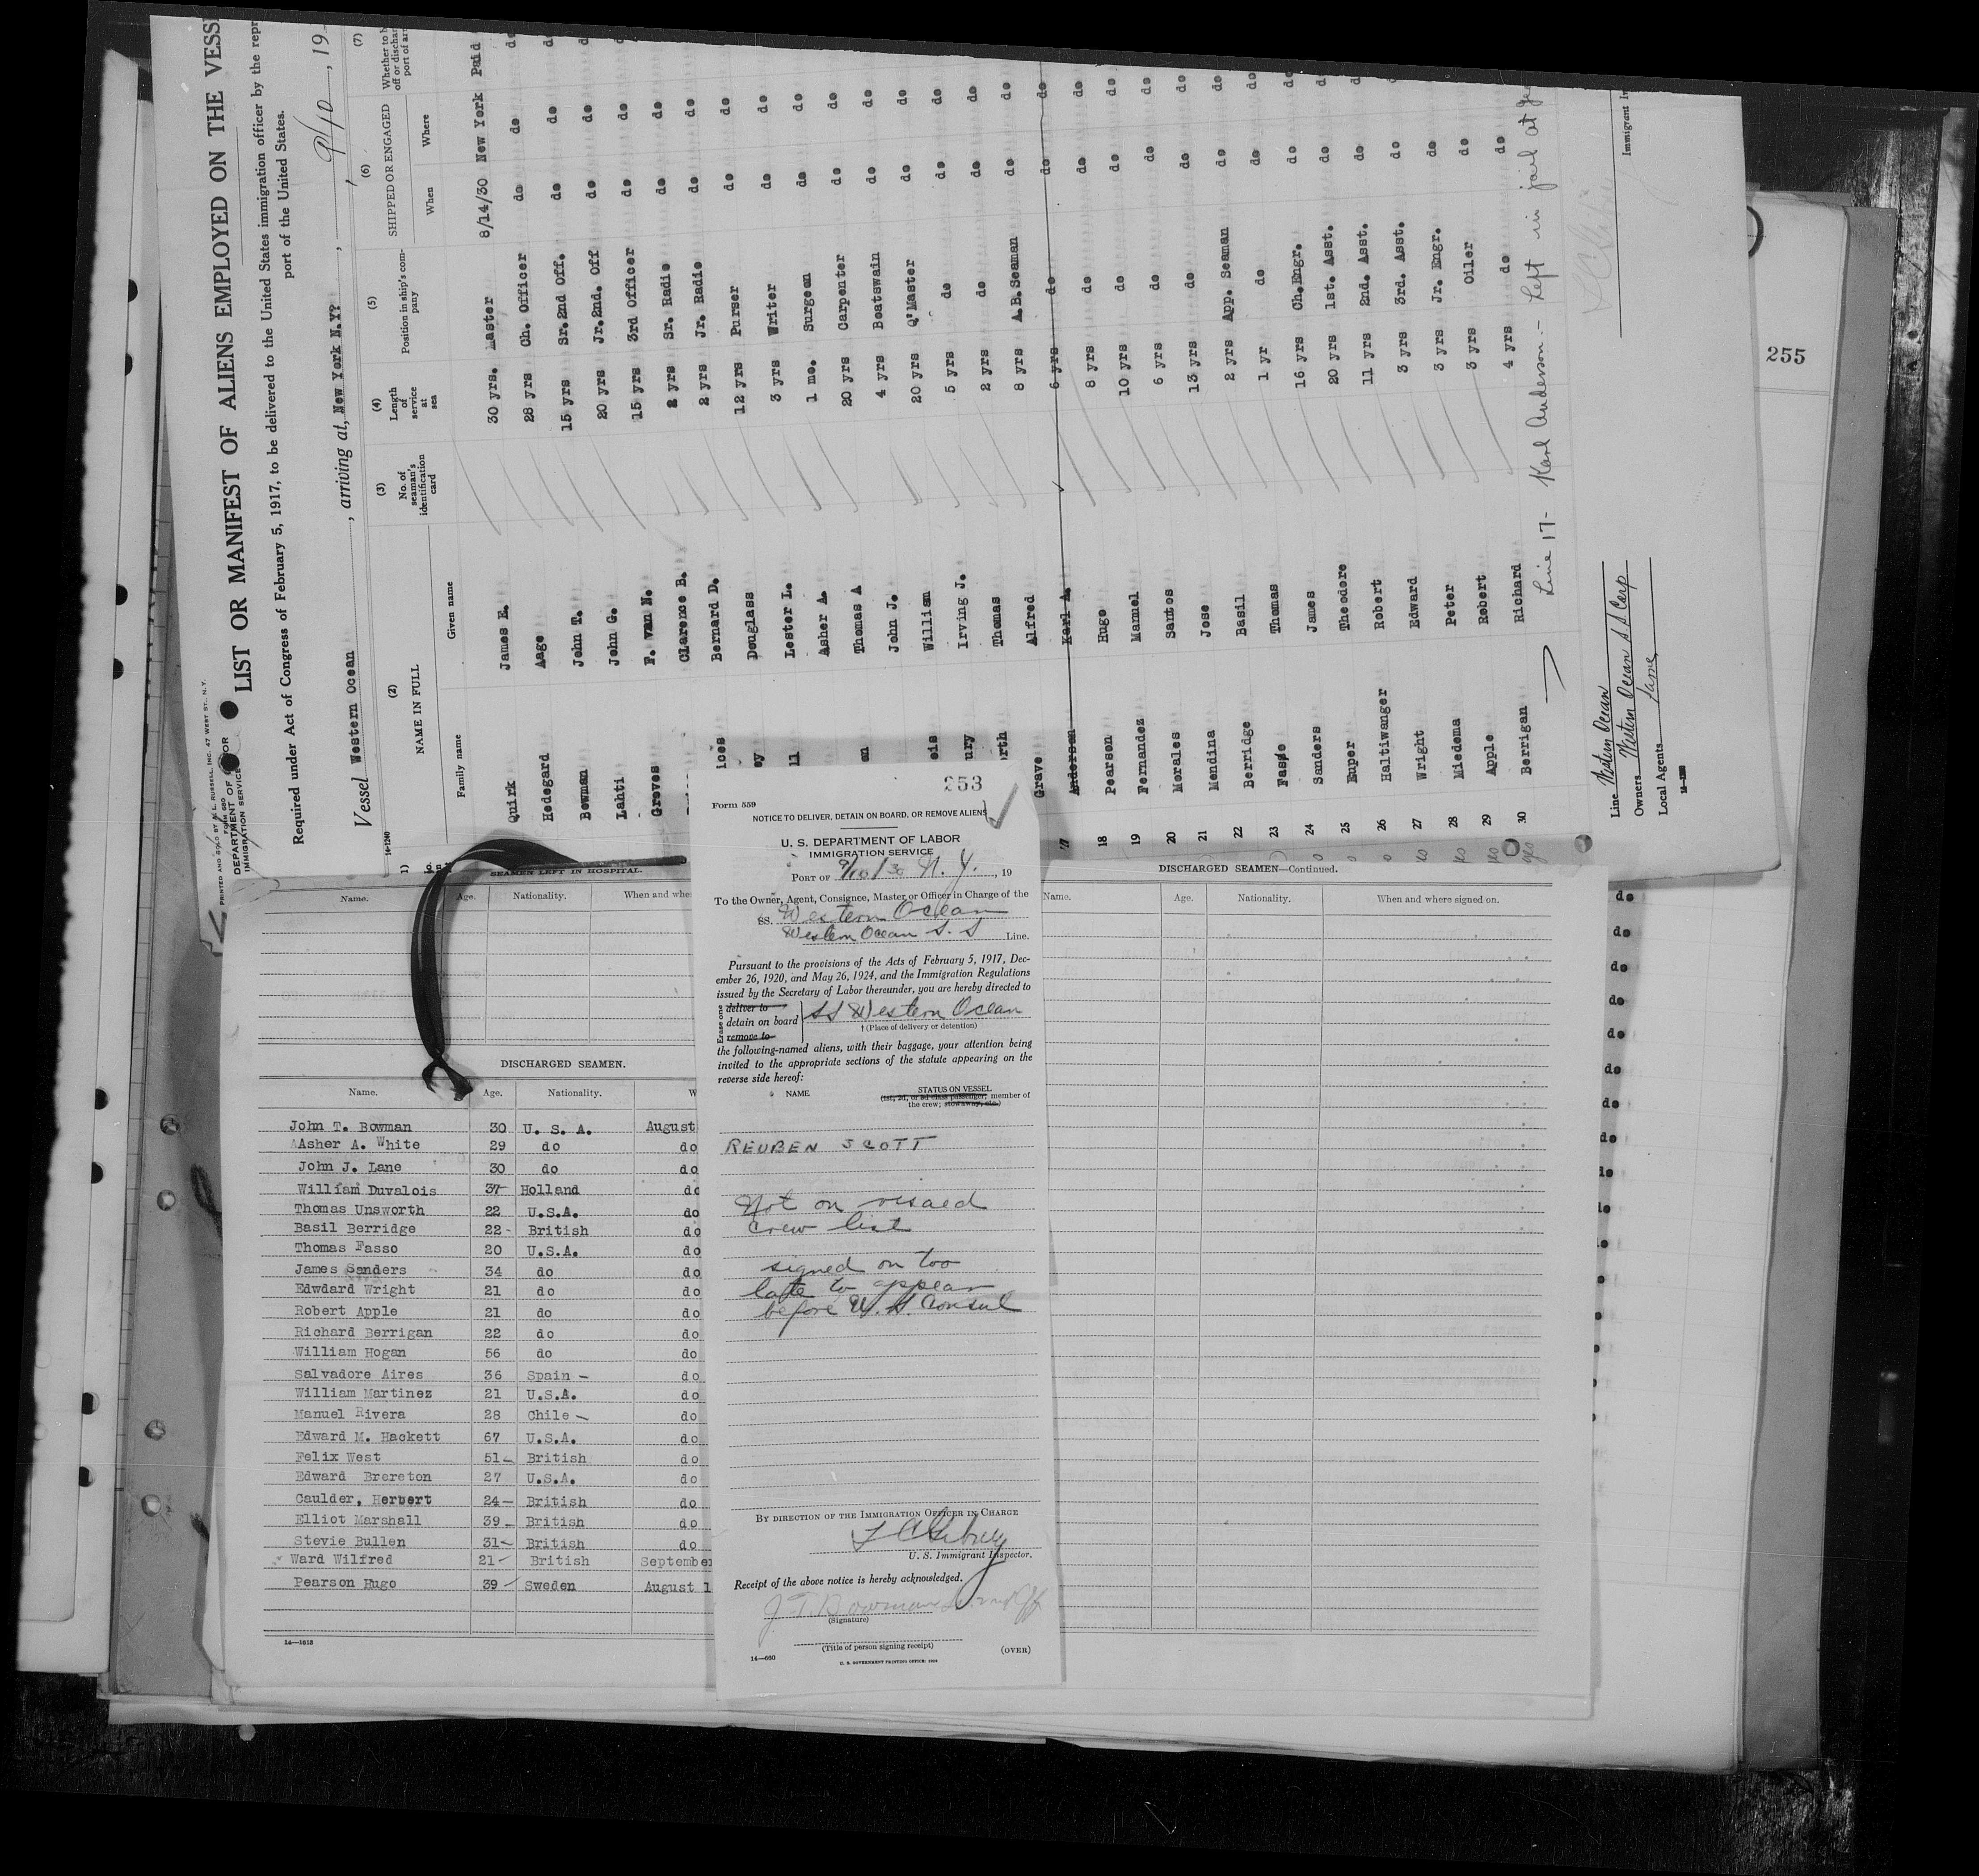 PRINTED AND SOLD BY M. L. RUSSELL, INC. 47 WEST ST., N.Y.
FORM 680
DEPARTMENT OF LABOR
IMMIGRATION SERVICE
LIST OR MANIFEST OF ALIENS EMPLOYED ON THE VESS
Required under Act of Congress of February 5, 1917, to be delivered to the United States immigration officer by the repr
port of the United States.
Vessel Western Ocean, arriving at, New York N.Y?, 9/10, 19
14-1240
(2) (3) (4) (5) (6) (7)
NAME IN FULL No. of seaman's identification card Length of service at sea Position in ship's company SHIPPED OR ENGAGED Whether to b off or dischar port of ar
Family name Given name When Where
Quirk James E. 30 yrs. Master 8/14/30 New York Paid
Hedegard Aage 28 yrs Ch. Officer do do do
Bowman John T. 15 yrs Sr.2nd Off. do do d
Lahti John G. 20 yrs Jr.2nd. Off do do d
Groves F. van N. 15 yrs 3rd Officer do do do
Clarence B. 2 yrs Sr. Radio do do do
ices Bernard D. 2 yrs Jr. Radio do do do
ey Douglass 12 yrs Purser do do
ll Lester L. 3 yrs Writer do do
Asher A. 1 mo. Surgeon do do
en Thomas A 20 yrs Carpenter do do
John J. 4 yrs Boatswain do do
eis William 20 yrs Q'Master do do
ury Irving J. 5 yrs do do do
orth Thomas 2 yrs do do do
Grave Alfred 8 yrs A.B.Seaman do do
17 Anderson Karl A. 6 yrs do do do
18 Pearson Hugo 8 yrs do do do
19 Fernandez Manuel 10 yrs do do do
20 Morales Santos 6 yrs do do do
21 Mendina Jose 13 yrs do do do
22 Berridge Basil 2 yrs App. Seaman do do
23 Fasso Thomas 1 yr do do do
24 Sanders James 16 yrs Ch.Engr. do do
25 Euper Theodore 20 yrs 1st. Asst. do d
26 Haltiwanger Robert 11 yrs 2nd. Asst. do d
27 Wright Edward 3 yrs 3rd. Asst. do d
28 Miedema Peter 3 yrs Jr. Engr. do
29 Apple Robert 3 yrs Oiler do
30 Berrigan Richard 4 yrs do do
Line 17- Karl Anderson.- Left in jail at
Line Western Ocean
Owners Western Ocean S S Corp
Local Agents Same
Immigrant I
255
SEAMEN LEFT IN HOSPITAL.
Name. Age. Nationality. When and whe
DISCHARGED SEAMEN.
Name. Age. Nationality. W
John T. Bowman 30 U. S. A. August
Asher A. White 29 do do
John J. Lane 30 do do
William Duvalois 37 Holland do
Thomas Unsworth 22 U.S.A. do
Basil Berridge 22 - British do
Thomas Fasso 20 U.S.A. do
James Sanders 34 do do
Edwdard Wright 21 do do
Robert Apple 21 do do
Richard Berrigan 22 do do
William Hogan 56 do do
Salvadore Aires 36 Spain - do
William Martinez 21 U.S.A. do
Manuel Rivera 28 Chile - do
Edward M. Hackett 67 U.S.A. do
Felix West 51 - British do
Edward Brereton 27 U.S.A. do
Caulder, Herbert 24 - British do
Elliot Marshall 39 - British do
Stevie Bullen 31 - British do
Ward Wilfred 21 - British September
Pearson Hugo 39 - Sweden August 1
14-1613
253
Form 559
NOTICE TO DELIVER, DETAIN ON BOARD, OR REMOVE ALIENS
U. S. DEPARTMENT OF LABOR
IMMIGRATION SERVICE
PORT OF 9/10/30 N. Y., 19
To the Owner, Agent, Consignee, Master or Officer in Charge of the
SS. Western Ocean
Western Ocean S. S Line.
Pursuant to the provisions of the Acts of February 5, 1917, Dec-
ember 26, 1920, and May 26, 1924, and the Immigration Regulations
issued by the Secretary of Labor thereunder, you are hereby directed to
Erase one
deliver to
detain on board SS Western Ocean
remove to
† (Place of delivery or detention)
the following-named aliens, with their baggage, your attention being
invited to the appropriate sections of the statute appearing on the
reverse side hereof:
NAME STATUS ON VESSEL
(1st, 2d, or 3d class passenger; member of
the crew; stowaway, etc.)
REUBEN SCOTT
Not on visaed
crew list
signed on too
late to appear
before U. S. Consul
BY DIRECTION OF THE IMMIGRATION OFFICER IN CHARGE
U. S. Immigrant Inspector.
Receipt of the above notice is hereby acknowledged.
J. T. Bowman
(Signature)
(Title of person signing receipt)
14-660
(OVER)
U. S. GOVERNMENT PRINTING OFFICE: 1929
DISCHARGED SEAMEN—Continued.
Name. Age. Nationality. When and where signed on.
do
do
do
do
do
do
do
do